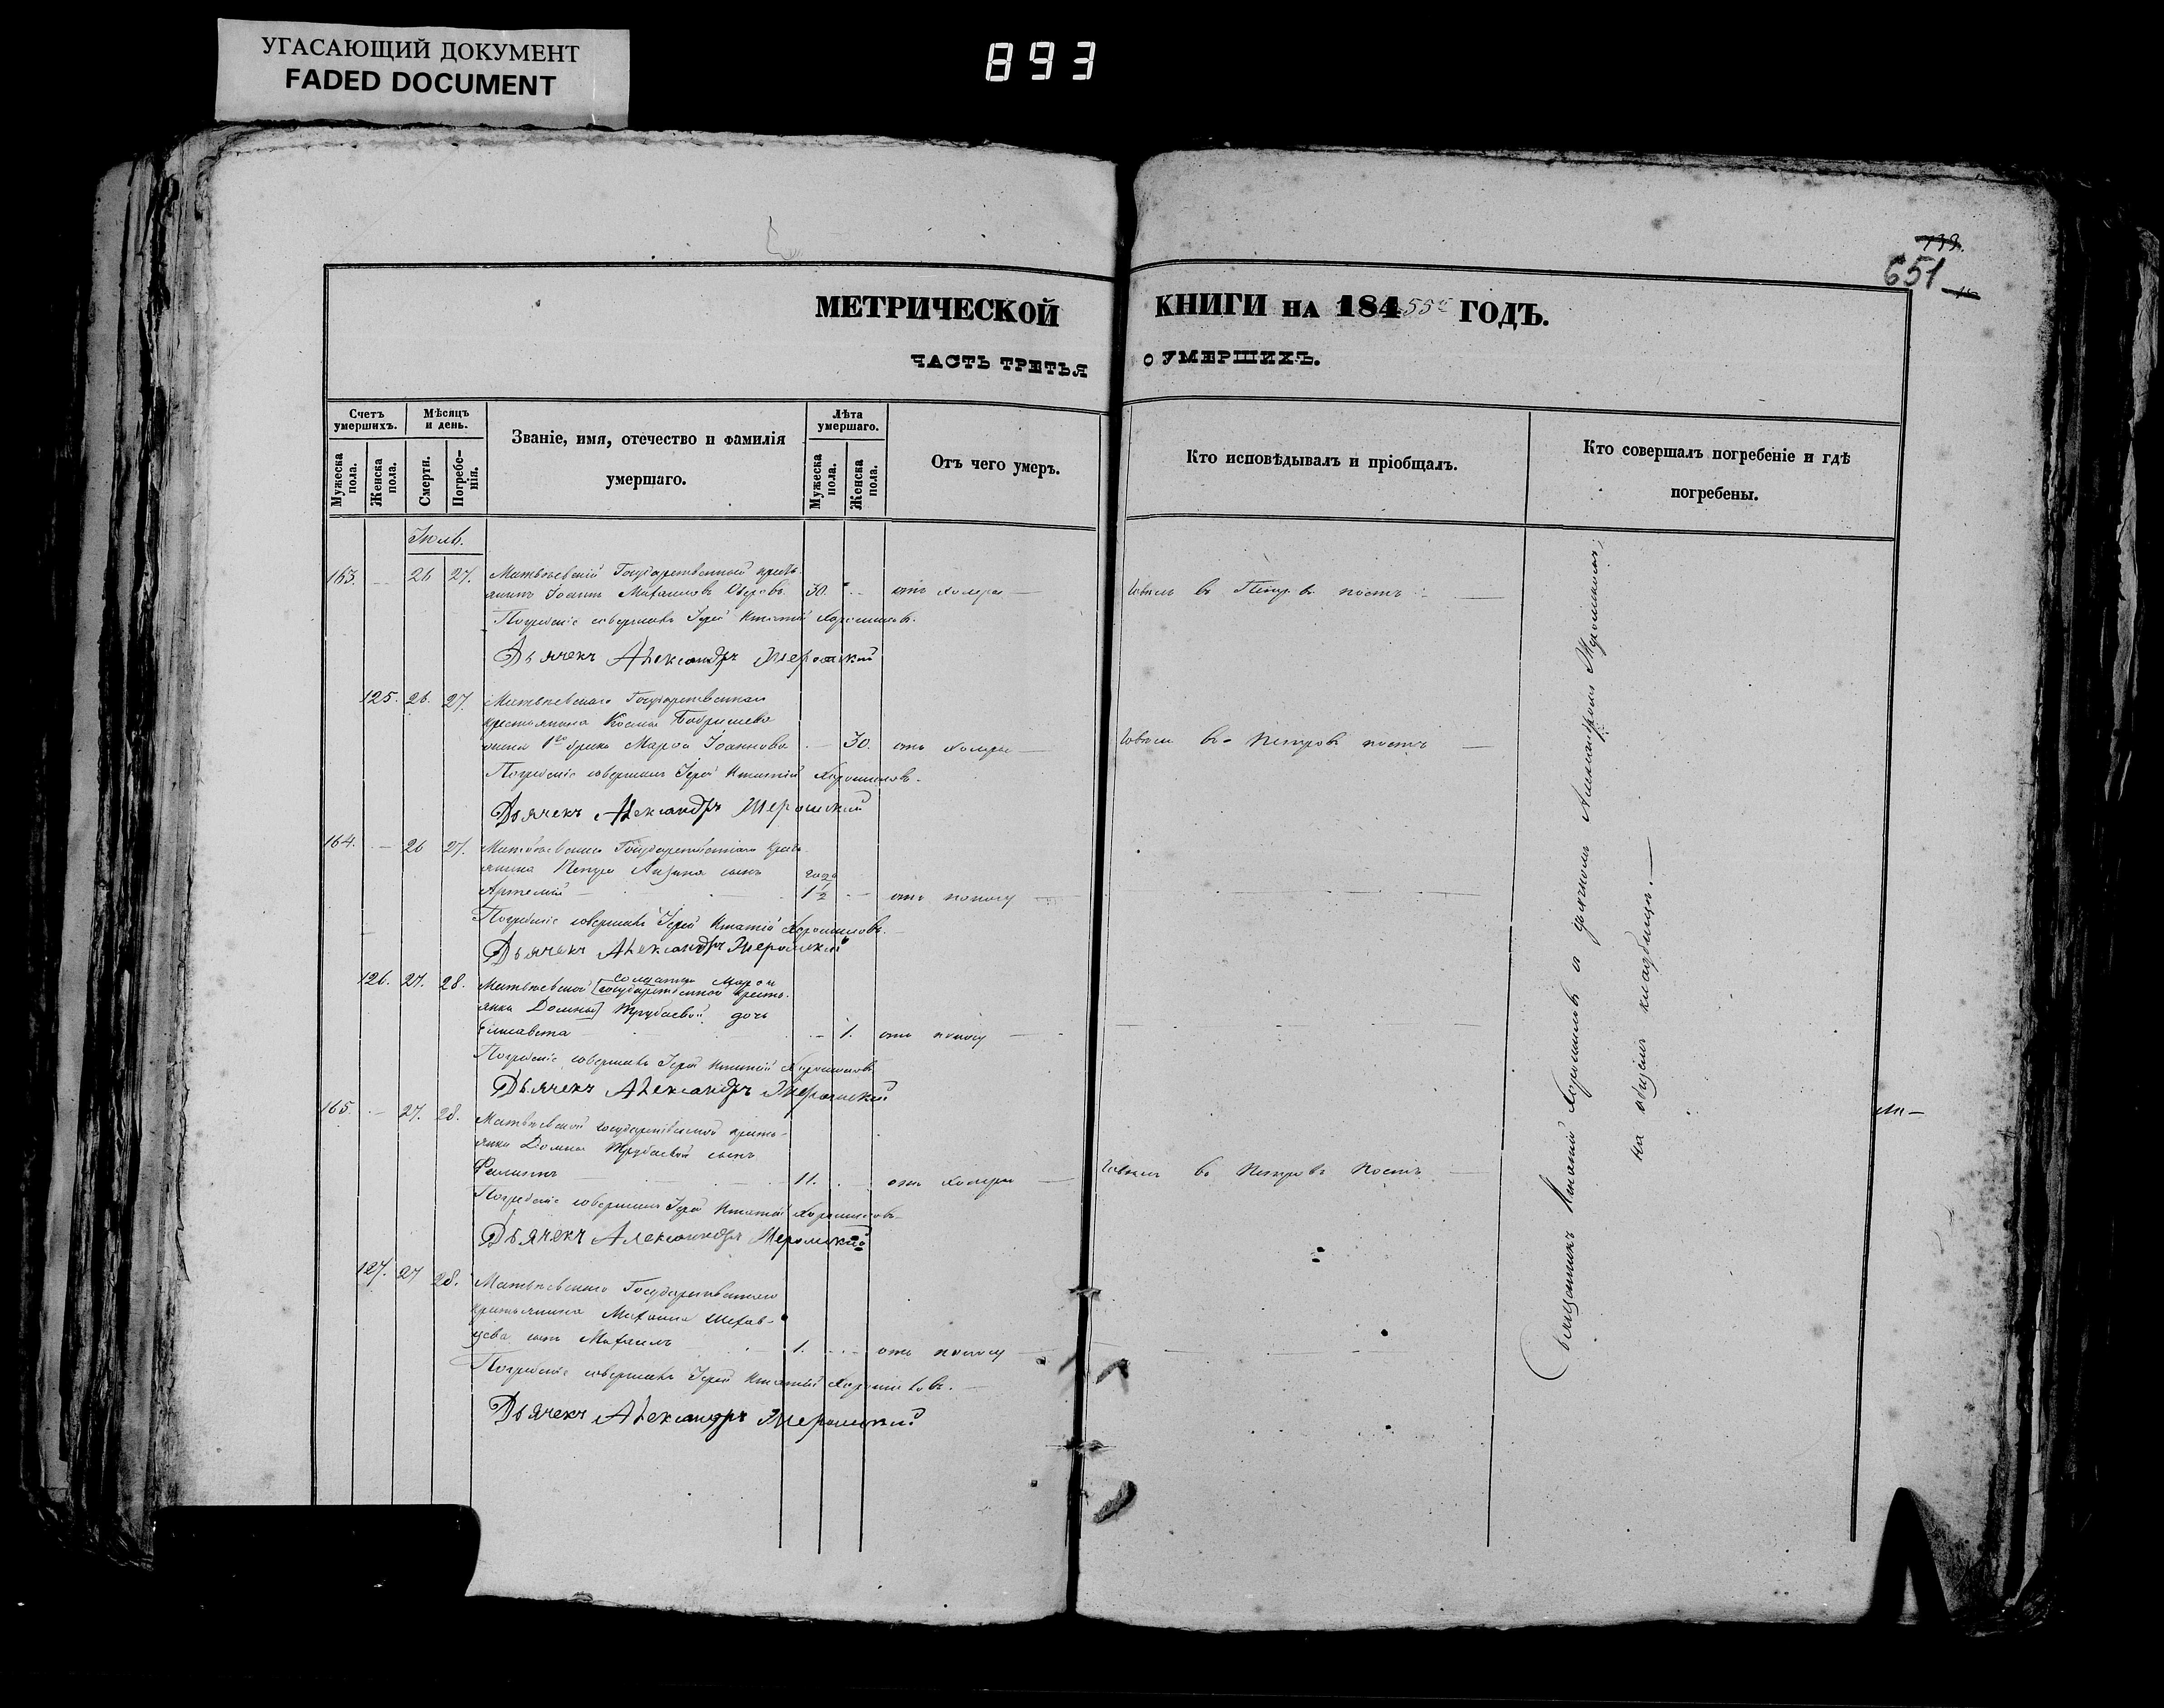 УГАСАЮЩИЙ ДОКУМЕНТ
FADED DOCUMENT
893
651
МЕТРИЧЕСКОЙ КНИГИ НА 184 55 ГОДЪ.
ЧАСТЬ ТРЕТЬЯ О УМЕРШИХЪ.
Счетъ умершихъ.
Мужеска пола.
Женска пола.
Мѣсяцъ и день.
Смерти.
Погребенія.
Званіе, имя, отечество и фамилія
умершаго.
Лѣта умершаго.
Мужеска пола.
Женска пола.
Отъ чего умеръ.
Кто исповѣдывалъ и пріобщалъ.
Кто совершалъ погребеніе и гдѣ
погребены.
Іюль.
163. — 26 27. Матвѣевскій Государственный кресть-
янинъ Іоаннъ Михаиловъ 30. — отъ холеры — въ Петровъ постъ —
Погребеніе совершалъ Іерей Игнатій Хорошиловъ.
Дьячекъ Александръ
125. 26. 27. Матвѣевскаго Государственнаго
крестьянина Космы
жена 1го брака Марѳа Іоаннова — 30. отъ холеры — въ Петровъ постъ —
Погребеніе совершалъ Іерей Игнатій Хорошиловъ.
Дьячекъ Александръ
164. — 26 27. Матвѣевскаго Государственнаго кресть-
янина Петра сынъ года
Артемій — 1 1/2 — отъ поносу
Погребеніе совершалъ Іерей Игнатій Хорошиловъ.
Дьячекъ Александръ
126. 27. 28. Матвѣевской [государственной кресть-
солдатки Марѳы
янки Домны] Трубаевой дочь
Елисавета — 1. отъ поносу —
Погребеніе совершалъ Іерей Игнатій Хорошиловъ
Дьячекъ Александръ
165. — 27. 28. Матвѣевской государственной кресть-
янки Домны Трубаевой сынъ
Филиппъ — 11. — отъ холеры — въ Петровъ Постъ —
Погребеніе совершалъ Іерей Игнатій Хорошиловъ
Дьячекъ Александръ
127. 27 28. Матвѣевскаго Государственнаго
крестьянина Михаила Шехов-
цова сынъ Михаилъ — 1. — отъ поносу —
Погребеніе совершалъ Іерей Игнатій Хорошиловъ.
Дьячекъ Александръ
Священникъ Игнатій Хорошиловъ съ дьячкомъ Александромъ
на общемъ кладбищѣ. —